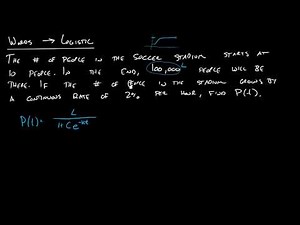 WORDS → LOGISTIC
THE # OF PEOPLE IN THE SOCCER STADIUM STARTS AT
10 PEOPLE. IN THE END, 100,000 L PEOPLE WILL BE
THERE. IF THE # OF PEOPLE IN THE STADIUM GROWS BY
A CONTINUOUS RATE OF 2% PER HOUR, FIND P(t).
P(t) = L / 1+Ce^-kt